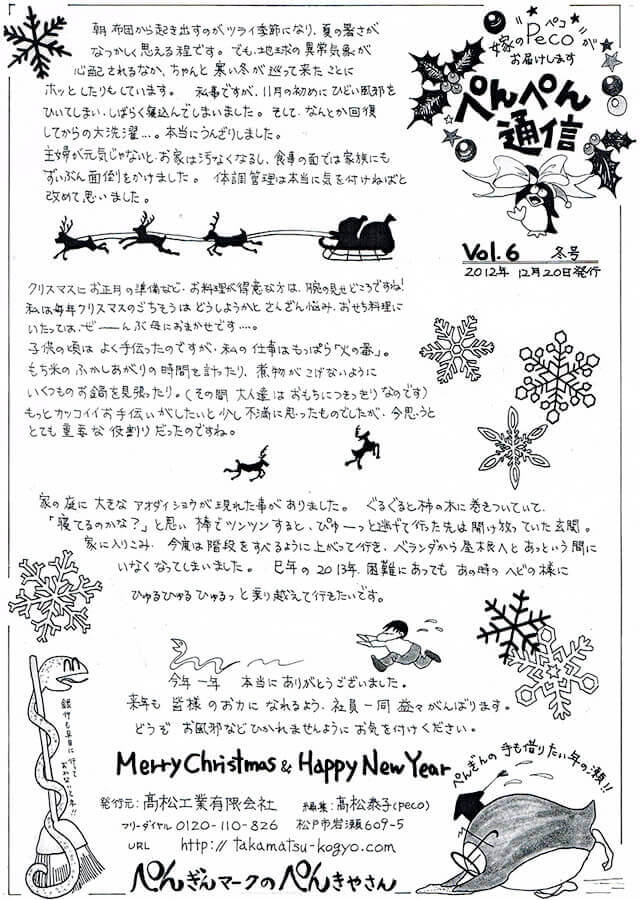 嫁の"Peco"が
ペコ
お届けします
ぺんぺん
通信
Vol.6 冬号
2012年 12月20日発行
朝 布団から起き出すのがツライ季節になり、夏の暑さが
なつかしく思える程です。でも、地球の異常気象が
心配されるなか、ちゃんと寒い冬が巡って来たことに
ホッとしたりもしています。 私事ですが、11月の初めにひどい風邪を
ひいてしまい、しばらく寝込んでしまいました。そして、なんとか回復
してからの大洗濯…。本当にうんざりしました。
主婦が元気じゃないと、お家は汚なくなるし、食事の面では家族にも
ずいぶん面倒をかけました。 体調管理は本当に気を付けねばと
改めて思いました。
クリスマスにお正月の準備など、お料理が得意な方は、腕の見せどころですね!
私は毎年クリスマスのごちそうはどうしようかとさんざん悩み、おせち料理に
いたっては、ぜーーんぶ母におまかせです….。
子供の頃はよく手伝ったのですが、私の仕事はもっぱら「火の番」。
もち米のふかしあがりの時間を計ったり、煮物がこげないように
いくつものお鍋を見張ったり。(その間 大人達はおもちにつきっきりなのです)
もっとカッコイイお手伝いがしたいと少し不満に思ったものでしたが、今思うと
とても重要な役割りだったのですね。
家の庭に大きなアオダイショウが現れた事がありました。 ぐるぐると柿の木に巻きついていて、
「寝てるのかな?」と思い棒でツンツンすると、ぴゅーっと逃げて行った先は開け放っていた玄関。
家に入りこみ、今度は階段をすべるように上がって行き、ベランダから屋根へとあっという間に
いなくなってしまいました。 巳年の2013年、困難にあってもあの時のヘビの様に
ひゅるひゅるひゅるっと乗り越えて行きたいです。
今年一年 本当にありがとうございました。
来年も皆様のお力になれるよう、社員一同益々がんばります。
どうぞお風邪などひかれませんようにお気を付けください。
Merry Christmas & Happy New Year
発行元:髙松工業有限会社 編集:髙松泰子(peco)
フリーダイヤル 0120-110-826 松戸市岩瀬609-5
URL http://takamatsu-kogyo.com
ぺんぎんマークのペンきやさん
ぺんぎんの手も借りたい年の瀬!!